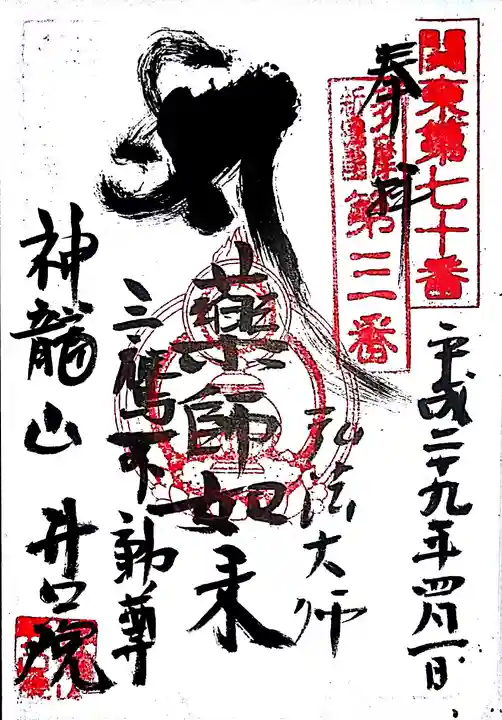 関東第七十番
奉拝
多摩
新
第三番
平成二十九年四月一日
弘法大師
薬師如来
三鷹不動尊
神龍山 井口院